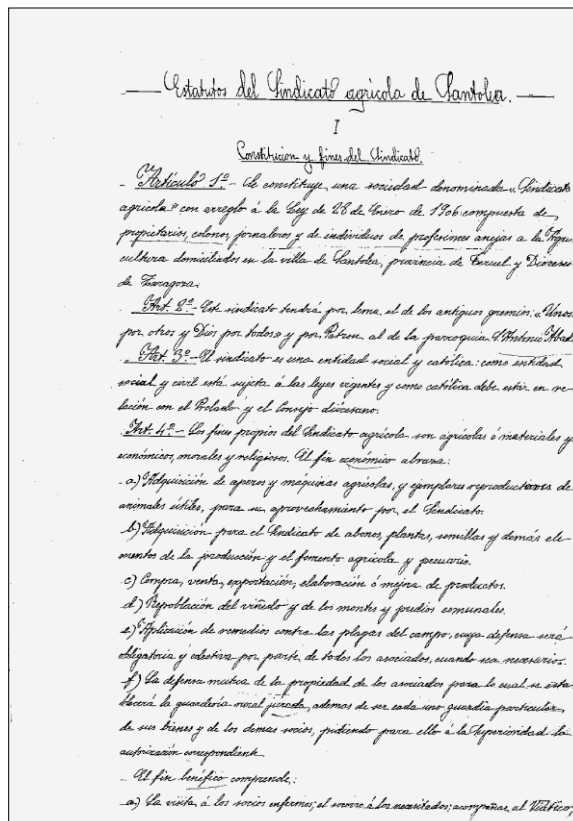 Estatutos del Sindicato agrícola de Santolea.
I
Constitucion y fines del Sindicato.
- Artículo 1º.- Se constituye una sociedad denominada "Sindicato
agrícola" con arreglo á la Ley de 28 de Enero de 1906 compuesta de
propietarios, colonos, jornaleros y de individuos de profesiones anejas a la Agri
cultura domiciliados en la villa de Santolea, provincia de Teruel y Diócesis
de Zaragoza.
Art. 2º.- Este sindicato tendrá por lema el de los antiguos gremios: "Unos
por otros y Dios por todos" y por Patron al de la parroquia S. Antonio Abad.
- Art. 3º.- El sindicato es una entidad social y católica: como entidad
social y civil está sujeta á las leyes vigentes y como católica debe estar en re-
lación con el Prelado y el Consejo diocesano.
Art. 4º.- Los fines propios del Sindicato agrícola son agrícolas ó materiales y
económicos, morales y religiosos. El fin económico abraza:
-a) Adquisición de aperos y máquinas agrícolas, y ejemplares reproductores de
animales útiles, para su aprovechamiento por el Sindicato.
b) Adquisición para el Sindicato de abonos, plantas, semillas y demás ele-
mentos de la producción y el fomento agrícola y pecuario.
c) Compra, venta, exportación, elaboración ó mejora de productos.
d) Repoblación del viñedo y de los montes y predios comunales.
e) Aplicación de remedios contra las plagas del campo, cuya defensa será
obligatoria y colectiva por parte de todos los asociados, cuando sea necesario.
f) La defensa mutua de la propiedad de los asociados para lo cual se esta
blecerá la guardería rural jurada, ademas de ser cada uno guardia particular
de sus bienes y de los demas socios, pidiendo para ello á la Superioridad la
autorización correspondiente.
- El fin benéfico comprende:
a) La visita á los socios enfermos; el socorro á los necesitados; acompañar al Viático;